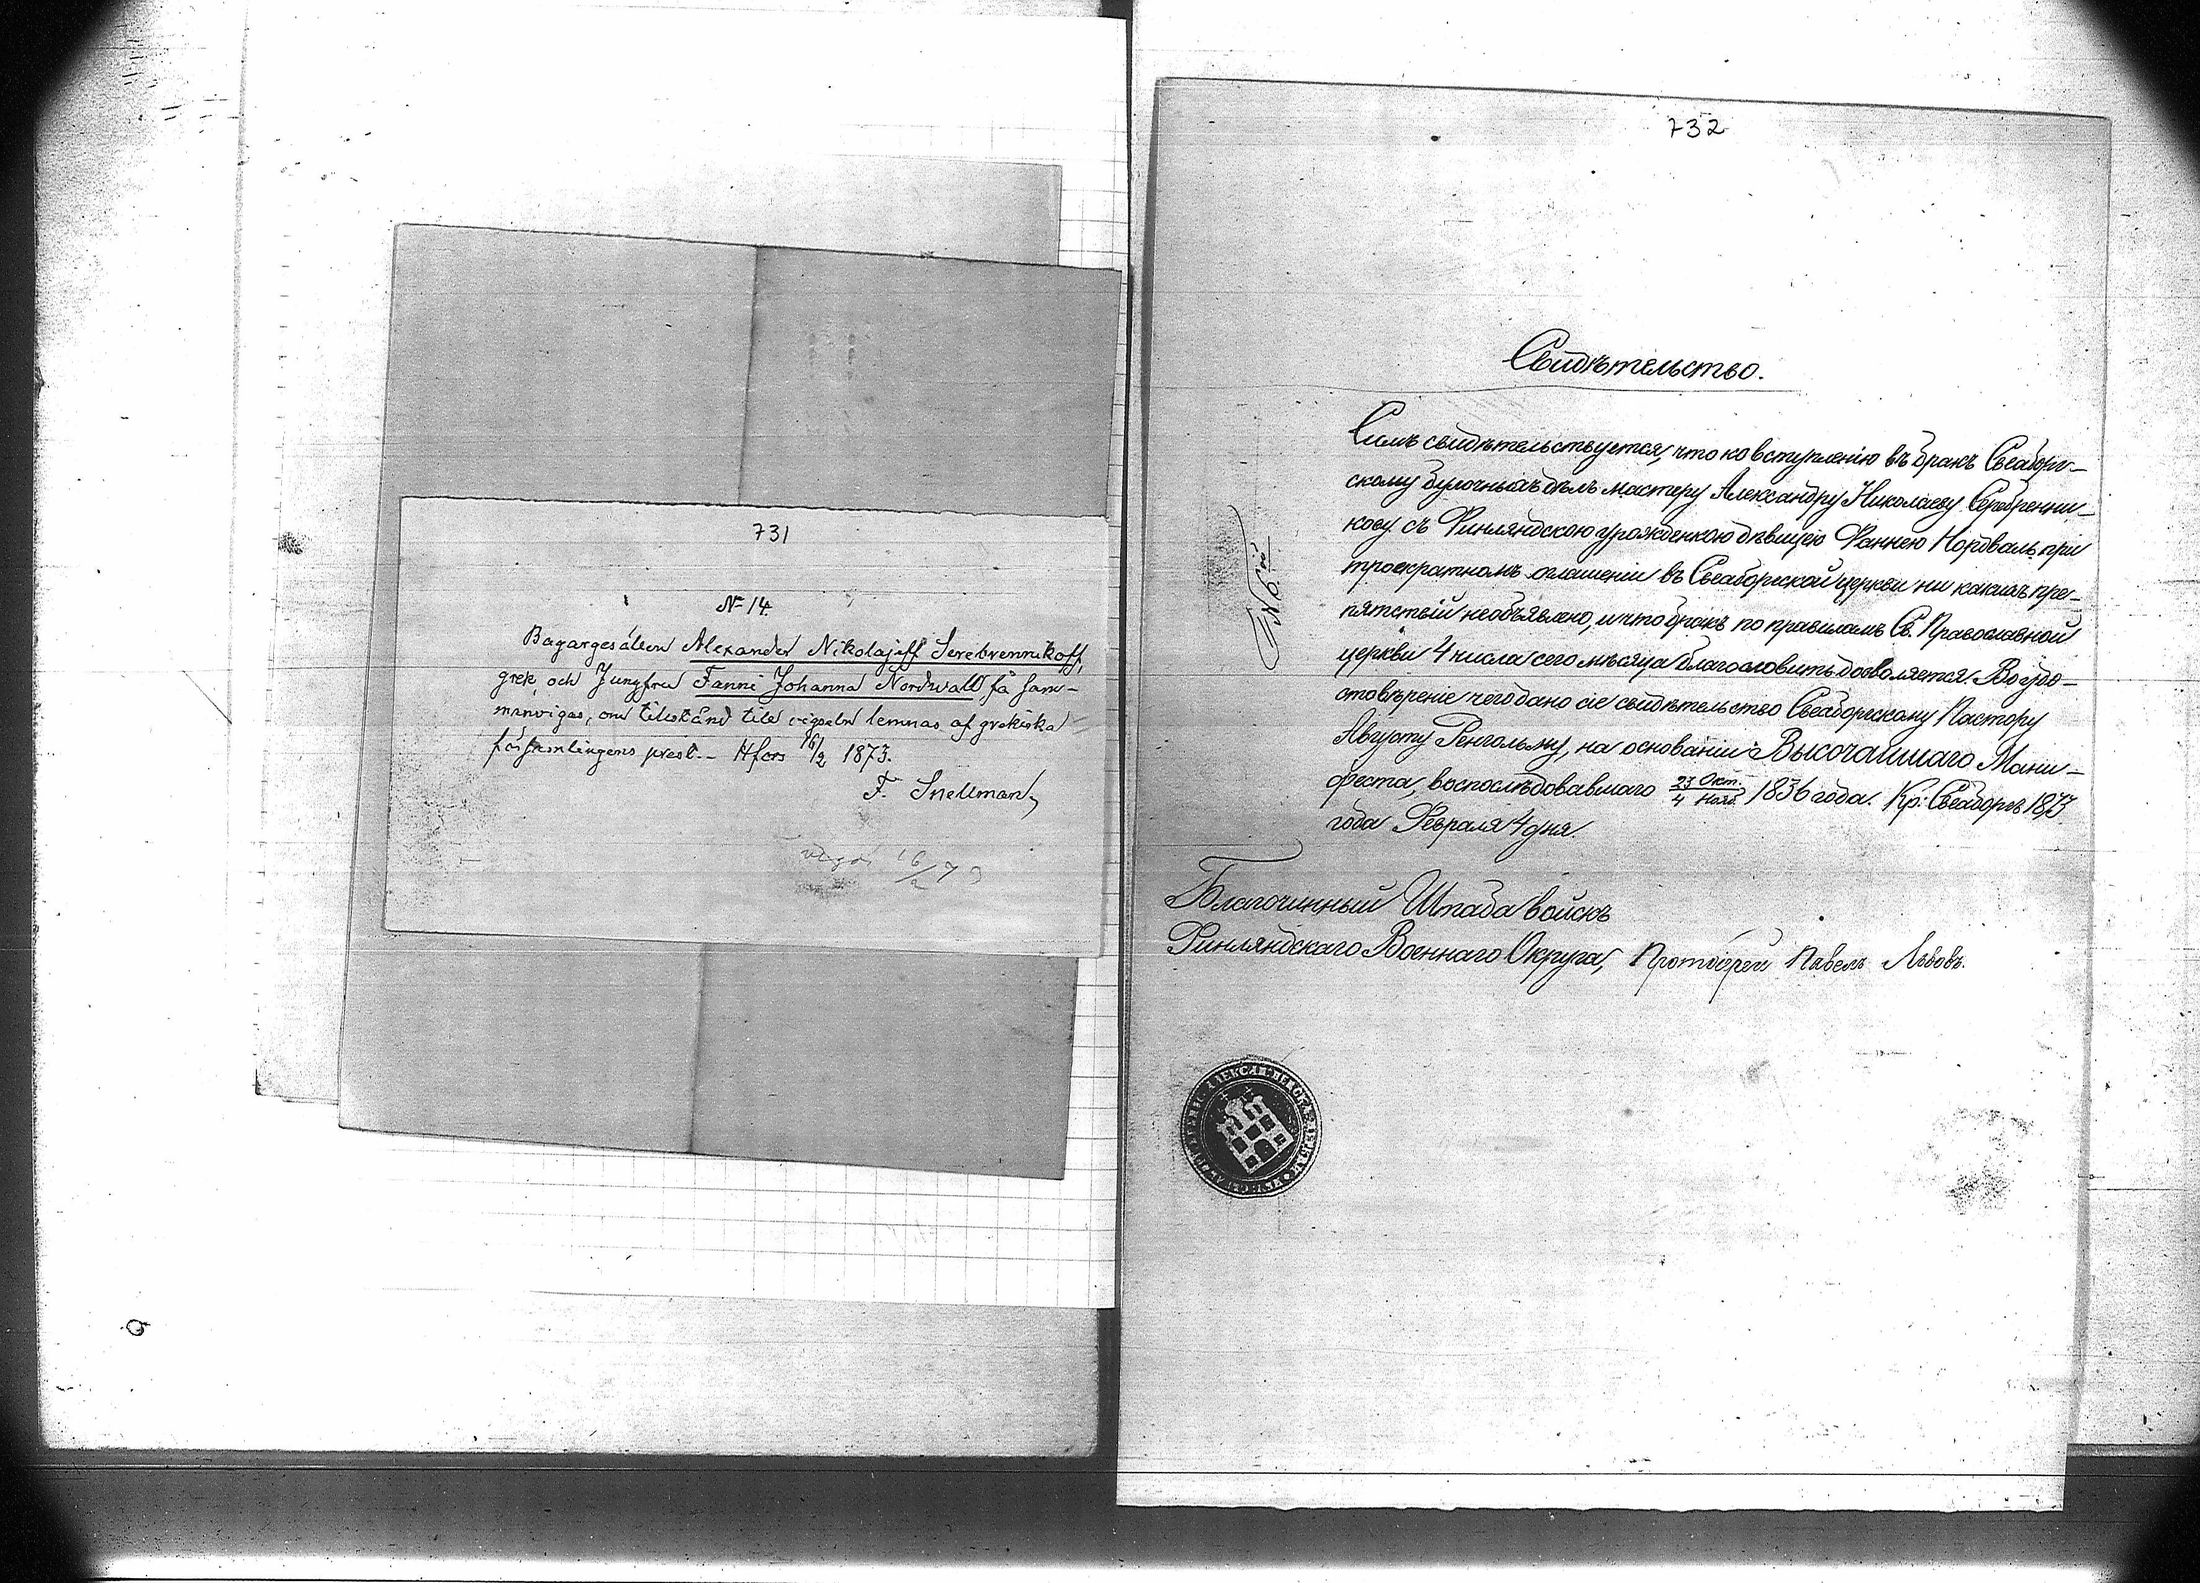 731
№ 14.
Bagargesällen Alexander Nikolajeff Serebrennikoff,
grek, och Jungfru Fanni Johanna Nordwall få sam-
manvigas, om tillstånd till vigseln lemnas af grekiska
församlingens prest. - Hfors 16/2 1873.
F. Snellman
vigde 16/2 73
732
Свидѣтельство.
Симъ свидѣтельствуется, что ко вступленію въ бракъ Свеаборг-
скому булочныхъ дѣлъ мастеру Александру Николаеву Серебренни-
кову съ Финляндскою урожденкою дѣвицею Фаннею Нордваль, при
троекратномъ оглашеніи въ Свеаборгской церкви ни какихъ пре-
пятствій необъявлено, и что бракъ по правиламъ Св. Православной
церкви 4 числа сего мѣсяца благословить дозволяется. Во удо-
стовѣреніе чего дано сіе свидѣтельство Свеаборгскому Пастору
Августу Ренгольму, на основаніи Высочайшаго Мани-
феста, воспослѣдовавшаго 23 Окт./4 Нояб. 1836 года. Кр: Свеаборгъ 1873
года Февраля 4 дня.
№ 6.й
Благочинный Штаба войскъ
Финляндскаго Военнаго Округа, Протоіерей Павелъ Львовъ.